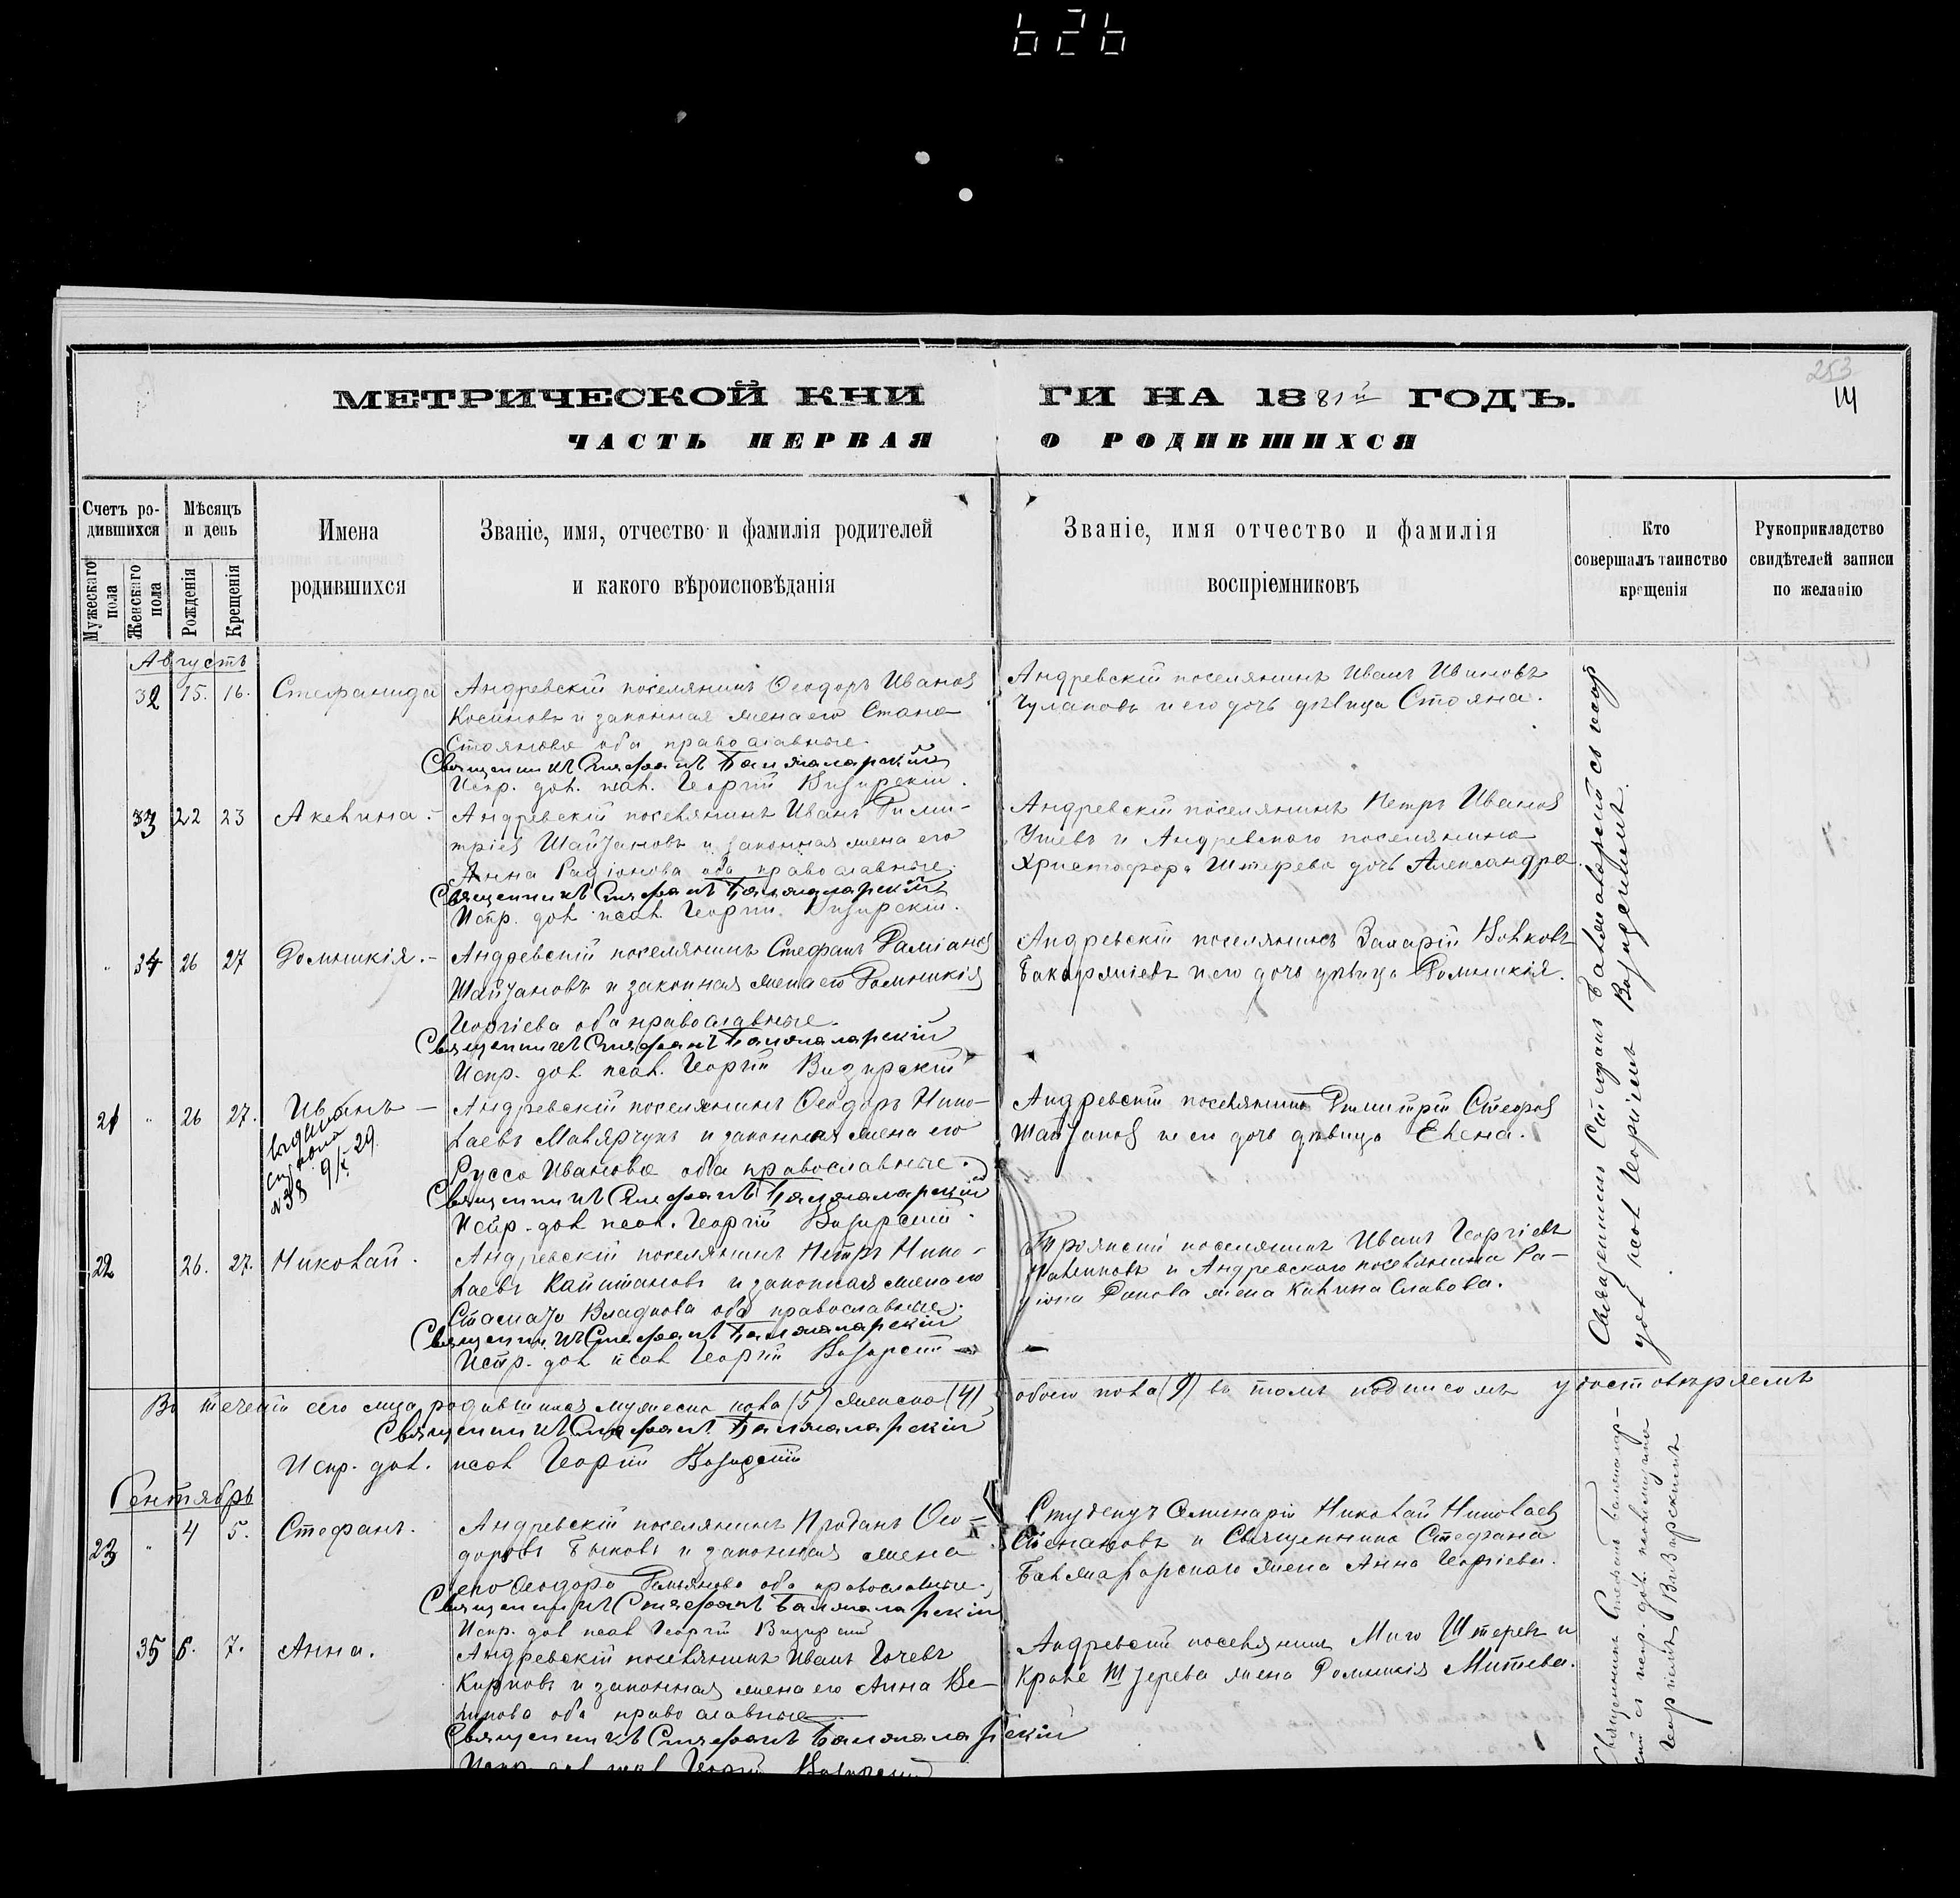 626
253
МЕТРИЧЕСКОЙ КНИ ГИ НА 1881й ГОДЪ.
ЧАСТЬ ПЕРВАЯ О РОДИВШИХСЯ
Счетъ ро-
дившихся
Мужескаго
пола
Женскаго
пола
Мѣсяцъ
и день
Рожденія
Крещенія
Имена
родившихся
Званіе, имя, отчество и фамилія родителей
и какого вѣроисповѣданія
Званіе, имя отчество и фамилія
воспріемниковъ
Кто
совершалъ таинство
крещенія
Рукоприкладство
свидѣтелей записи
по желанію
Августъ
32 15. 16. Стефанида
Андревскій поселянинъ Ѳеодоръ Иванов
и законная жена его Стана
Стоянова оба православные.
Священникъ Стефанъ Балжаларскій
Испр. дол. псал. Георгій Визирскій.
Андревскій поселянинъ Иванъ Ивановъ
Чулаковъ и его дочь дѣвица Стояна.
33 22 23 Акелина.
Андревскій поселянинъ Иванъ Дими-
тріев Шайтановъ и законная жена его
Анна Радіонова оба православные.
Священникъ Стефанъ Балжаларскій
Испр. дол. псал. Георгій Визирскій.
Андревскій поселянинъ Петръ Иванов
и Андревского поселянина
Христофора Штерева дочь Александра.
34 26 27 Домникія.
Андревскій поселянинъ Стефанъ Даміанов
Шайтановъ и законная жена его Домникія
Георгіева оба православные.
Священникъ Стефанъ Балжаларскій
Испр. дол. псал. Георгій Визирскій
Андревскій поселянинъ Захарій Волковъ
и его дочь дѣвица Домникія.
21 " 26 27. Иванъ
выдана
справка
№38 9/X 29
Андревскій поселянинъ Ѳеодоръ Нико-
лаевъ Малярчукъ и законная жена его
Русса Иванова оба православные.
Священникъ Стефанъ Балжаларскій
Испр. дол. псал. Георгій Визирскій.
Андревскій поселянинъ Димитрій Стефанов
Шайтанов и его дочь дѣвица Елена.
22 26. 27. Николай.
Андревскій поселянинъ Петръ Нико-
лаевъ Кайштановъ и законная жена его
Владкова оба православные.
Священникъ Стефанъ Балжаларскій
Испр. дол. псал. Георгій Визирскій
Троянскій поселянинъ Иванъ Георгіевъ
и Андревского поселянина Ра-
діона Данова жена Килина Славова.
Священникъ Стефанъ Балжаларскій съ испр
дол. псал. Георгіемъ Визирскимъ.
Въ теченіи сего м-ца родившихся мужеска пола (5) женска (4) обоего пола (9) въ томъ подписомъ удостовѣряемъ
Священникъ Стефанъ Балжаларскій
Испр. дол. псал Георгій Визирскій
Сентябрь
23 " 4 5. Стефанъ.
Андревскій поселянинъ Проданъ Ѳео-
доровъ Быковъ и законная жена
его Ѳеодора Демьянова оба православные.
Священникъ Стефанъ Балжаларскій
Испр. дол псал Георгій Визирскій
Студентъ Семинаріи Николай Николаев
Степановъ и Священника Стефана
Балжаларскаго жена Анна Георгіева.
35 6. 7. Анна.
Андревскій поселянинъ Иванъ Гочевъ
Кирковъ и законная жена его Анна Ве-
ликова оба православные
Священникъ Стефанъ Балжаларскій
Испр. дол псал Георгій Визирскій
Андревскій поселянинъ Миго Штеревъ и
жена Домникія Митева.
Священникъ Стефанъ Балжалар-
скій съ испр. дол. псаломщика
Георгіемъ Визирскимъ